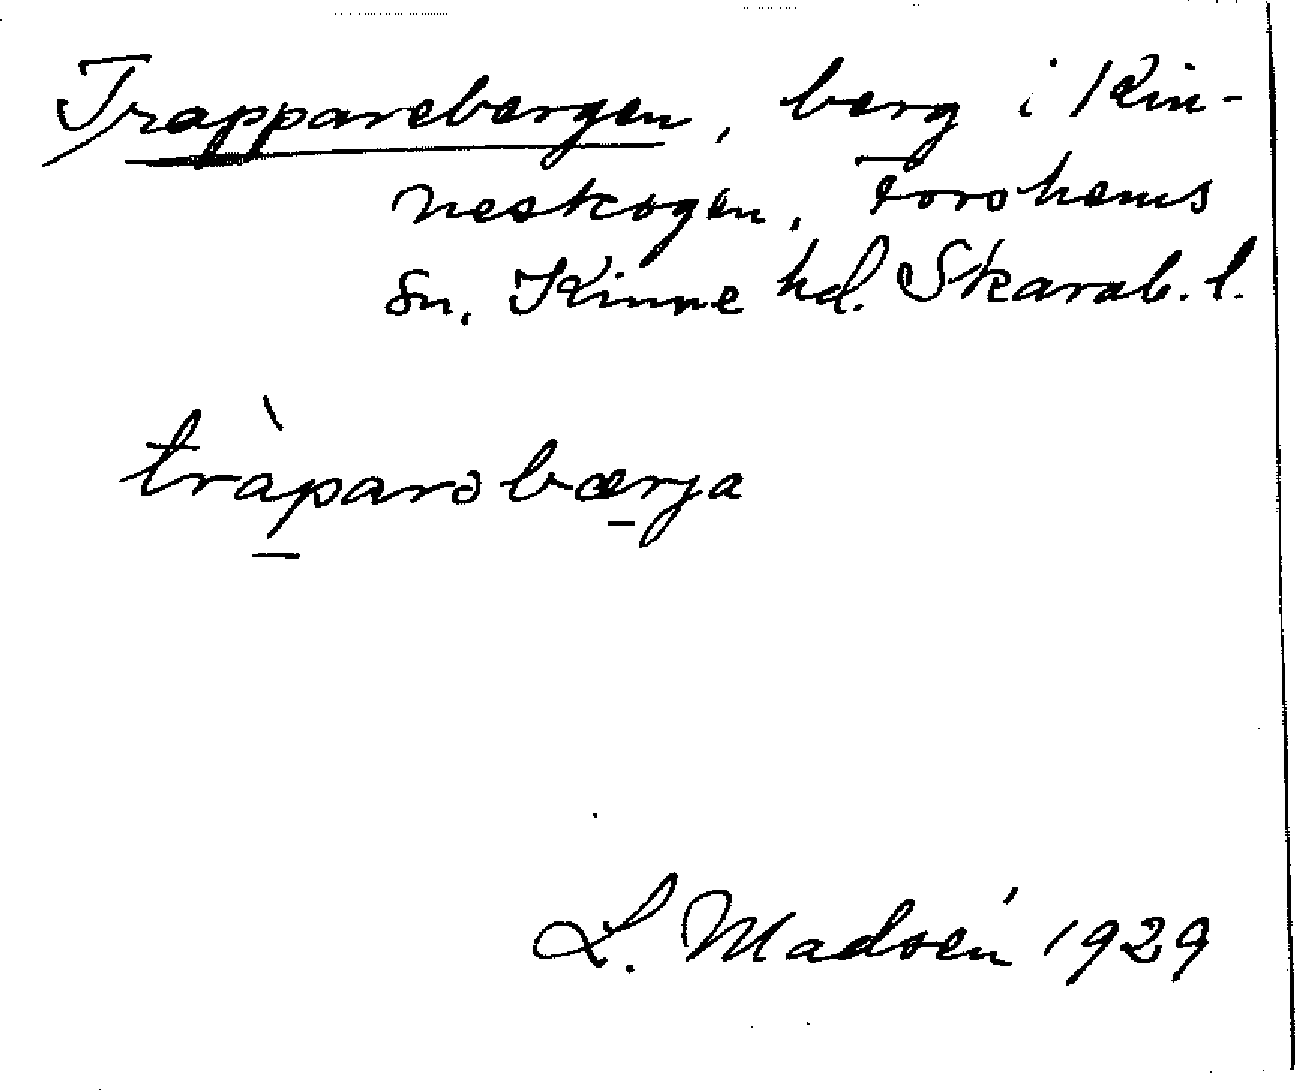 Trapparebergen, berg i Kin-
neskogen, Forshems
sn. Kinne hd. Skarab. l.
tràparəbærja
L. Madsén 1929